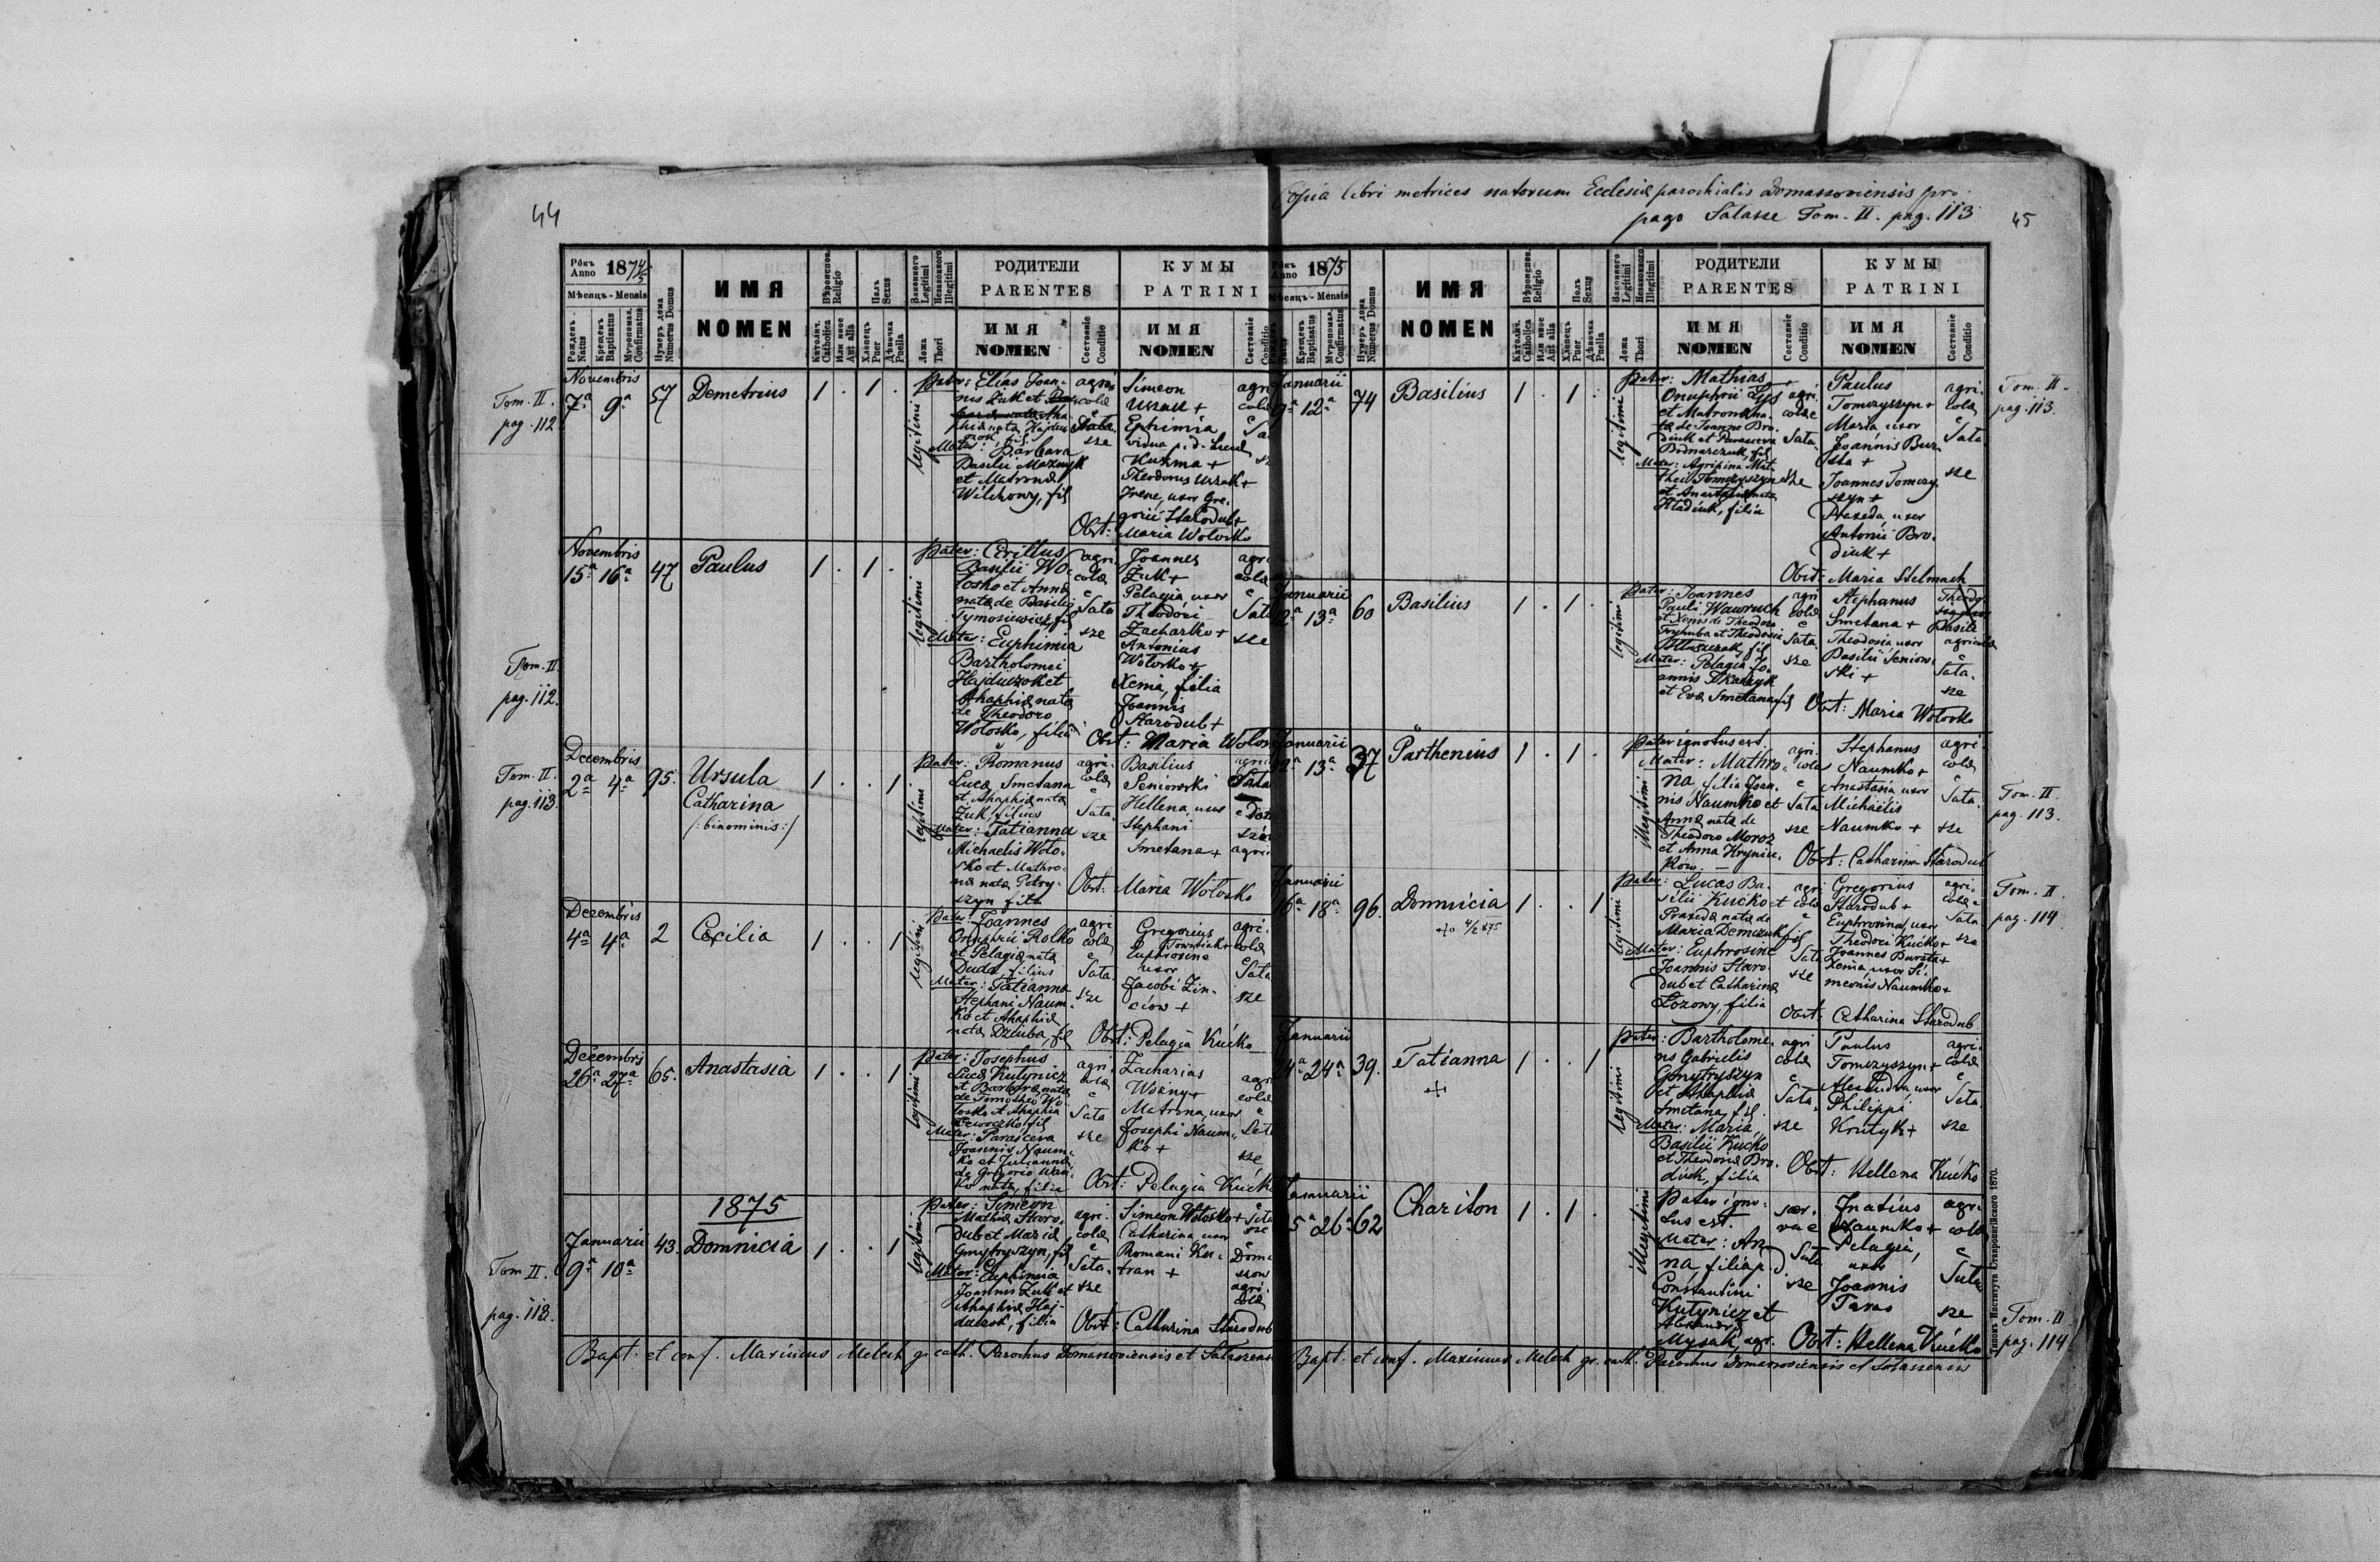 44
Copia libri metrices natorum Ecclesiæ parochialis Domassoviensis pro
pago Satasse Tom. II. pag. 113
45
Рôкъ Anno 1874/5
Мѣсяцъ - Mensis
Рожденъ. Natus
Крещенъ Baptisatus
Мѵропомаз. Confirmatus
Нумеръ дома Numerus Domus
ИМЯ
NOMEN
Вѣроиспов. Religio
Католич. Catholica
Или иное Aut alia
Полъ Sexus
Хлопецъ Puer
Дѣвочка Puella
Законного Legitimi
Незаконного Illegitimi
Ложа Thori
РОДИТЕЛИ
PARENTES
ИМЯ
NOMEN
Состояніе Conditio
КУМЫ
PATRINI
ИМЯ
NOMEN
Состояніе Conditio
Tom. II.
pag. 112
Novembris
7ª 9ª 57 Demetrius 1 . 1 .
legitimi
Pater: Elias Joan-
nis Zuk et
phia nata Hajdu-
czok, fil.
Mater: Barbara
Basilii Mazuryk
et Matronæ
Wilchowy, fil
agri-
colæ
e
Sata-
sze
Simeon
Uszak +
Ephimia
vidua p. d.
Kuzma +
Theodorus Uszak +
Irene, uxor Gre-
gorii Starodub +
Obst: Maria Wolosko
Tom. II
pag. 112
Novembris
15ª 16ª 47 Paulus 1 . 1 .
legitimi
Pater: Cirillus
Basilii Wo-
losko et Annæ
natæ de Basilio
Tymosiewicz, fil
Mater: Euphimia
Bartholomei
Hajduczok et
Ahaphiæ natæ
de Theodoro
Wolosko, filia
agri
colæ
e
Sata
sze
Joannes
Zuk +
Pelagia, uxor
Theodori
Zacharko +
Antonius
Wolosko +
Xenia, filia
Joannis
Starodub +
agri
colæ
e
Sata
sze
Obst: Maria Wolosko
Tom. II.
pag. 113.
Decembris
2ª 4ª 95. Ursula 1 . . 1
Catharina
/:binominis:/
legitimi
Pater: Romanus
Lucæ Smetana
et Ahaphiæ natæ
Zuk, filius
Mater: Tatianna
Michaelis Wolo-
sko et Mathro-
næ natæ Petry-
szyn filia
agri-
colæ
e
Sata-
sze
Basilius
Seniowski
Hellena, uxor
Stephani
Smetana +
Obst: Maria Wolosko
Dezembris
4ª 4ª 2 Cecilia 1 . . 1
legitimi
Pater: Joannes
Onuphrii Rolko
et Pelagiæ, natæ
Duda filius
Mater: Tatianna
Stephani Naum-
ko et Ahaphiæ
natæ Dziuba, fil
agri
colæ
e
Sata-
sze
Gregorius
Euphrosine
uxor
Jacobi Zin-
ciow +
agri-
colæ
e
Sata
sze
Obst: Pelagia Kućko
Decembris
26ª 27ª 65. Anastasia 1 . . 1
legitimi
Pater: Josephus
Lucæ Kutynicz
et Barbaræ, natæ
de Timotheo Wo-
losko et Ahaphia
Mater: Parasceva
Joannis Naum-
ko et Julianna
de Gregorio
nata, filia
agri-
colæ
e
Sata
sze
Zacharias
Wozny +
Matrona, uxor
Josephi Naum-
ko +
agri
colæ
e
Sata
sze
Obst: Pelagia Kućko
1875
Tom II.
pag. 113.
Januarii
9ª 10ª 43. Domnicia 1 . . 1
legitimi
Pater: Simeon
Mathiæ Staro-
dub et Mariæ
Gmytryszyn, fil
Mater: Euphimia
Joannis Zuk et
Ahaphiæ Haj-
duczok, filia
agri-
colæ
e
Sata-
sze
Simeon Wolosko +
Catharina uxor
Romani Ku-
tran +
Sata
sze
e
Doma
szow
agri-
colæ
Obst: Catharina Starodub
Bapt. et conf. Maximus Melech gr. cath. Parochus Domassoviensis et Satassensis
Рôкъ Anno 1875
Мѣсяцъ - Mensis
Крещенъ Baptisatus
Мѵропомаз. Confirmatus
Нумеръ дома Numerus Domus
ИМЯ
NOMEN
Вѣроиспов. Religio
Католич. Catholica
Или иное Aut alia
Полъ Sexus
Хлопецъ Puer
Дѣвочка Puella
Законного Legitimi
Незаконного Illegitimi
Ложа Thori
РОДИТЕЛИ
PARENTES
ИМЯ
NOMEN
Состояніе Conditio
КУМЫ
PATRINI
ИМЯ
NOMEN
Состояніе Conditio
Januarii
9ª 12ª 74 Basilius 1 . 1 .
legitimi
Pater: Mathias
Onuphrii Lys
et Matronæ na-
tæ de Joanne Bro-
diuk et Parasceva
Bodnarczuk, fil
Mater: Agripina Mat-
thei Tomczyszyn
et Anastasiæ natæ
Hladiuk, filia
agri-
colæ
e
Sata-
sze
Paulus
Tomczyszyn +
Maria uxor
Joannis Bur-
sta +
Joannes Tomczy-
szyn +
Praxeda, uxor
Antonii Bro-
diuk +
agri-
colæ
e
Sata-
sze
Obst: Maria Stelmach
Tom. II.
pag. 113.
Januarii
12ª 13ª 60 Basilius 1 . 1 .
legitimi
Pater: Joannes
Pauli Wawruch
et Xeniæ de Theodoro
Mater: Pelagia Jo-
annis Skaszyk
et Evæ Smetana, fil
agri
colæ
e
Sata-
sze
Stephanus
Smetana +
Theodosia uxor
Basilii Seniow-
ski +
agricolæ
e
Sata-
sze
Obst: Maria Wolosko
Januarii
12ª 13ª 37 Parthenius 1 . 1 .
illegitimi
Pater ignotus est.
Mater: Mathro-
na filia Joan-
nis Naumko et
Annæ natæ de
Theodoro Moroz
et Anna Hrynic-
kow
agri-
colæ
e
Sata
sze
Stephanus
Naumko +
Anastasia uxor
Michaëlis
Naumko +
agri-
colæ
Sata-
sze
Obst: Catharina Starodub
Tom. II.
pag. 113.
Januarii
16ª 18ª 96. Domnicia 1 . . 1
+o 4/2 875
legitimi
Pater: Lucas Ba-
silii Kućko et
Praxedæ natæ de
Maria Demczuk, fil
Mater: Euphrosine
Joannis Staro-
dub et Catharinæ
Lozowy, filia
agri-
colæ
e
Sata
sze
Gregorius
Starodub +
Euphrosina, uxor
Theodori Kućko +
Joannes Bursta +
Xenia, uxor Si-
meonis Naumko +
agri-
colæ e
Sata
sze
Obst: Catharina Starodub.
Tom. II
pag. 114
Januarii
24ª 24ª 39. Tatianna 1 . . 1
+
legitimi
Pater: Bartholome-
us Gabrielis
Gmytryszyn
et Ahaphiæ
Smetana, fil.
Mater: Maria,
Basilii Kućko
et Theodoræ Bro-
diuk, filia
agri
colæ
e
Sata-
sze
Paulus
Tomczyszyn +
Alexandra, uxor
Philippi
Krutyk +
agri-
colæ
e
Sata-
sze
Obst: Hellena Kućko
Januarii
25ª 26ª 62 Chariton 1 . 1 .
illegitimi
Pater igno-
tus est.
Mater: An-
na filia p. d.
Constantini
Kutynicz et
Alexandræ
Mysak, agr.
ser-
va e
Sata
sze
Ignatius
Naumko +
Pelagia,
uxor
Joannis
Taras
agri-
colæ
e
Sata
sze
Obst: Hellena Kućko
Tom. II
pag. 114
Bapt. et conf. Maximus Melech gr. cath. Parochus Domassoviensis et Satassensis
Типомъ Института Ставропигійского 1870.